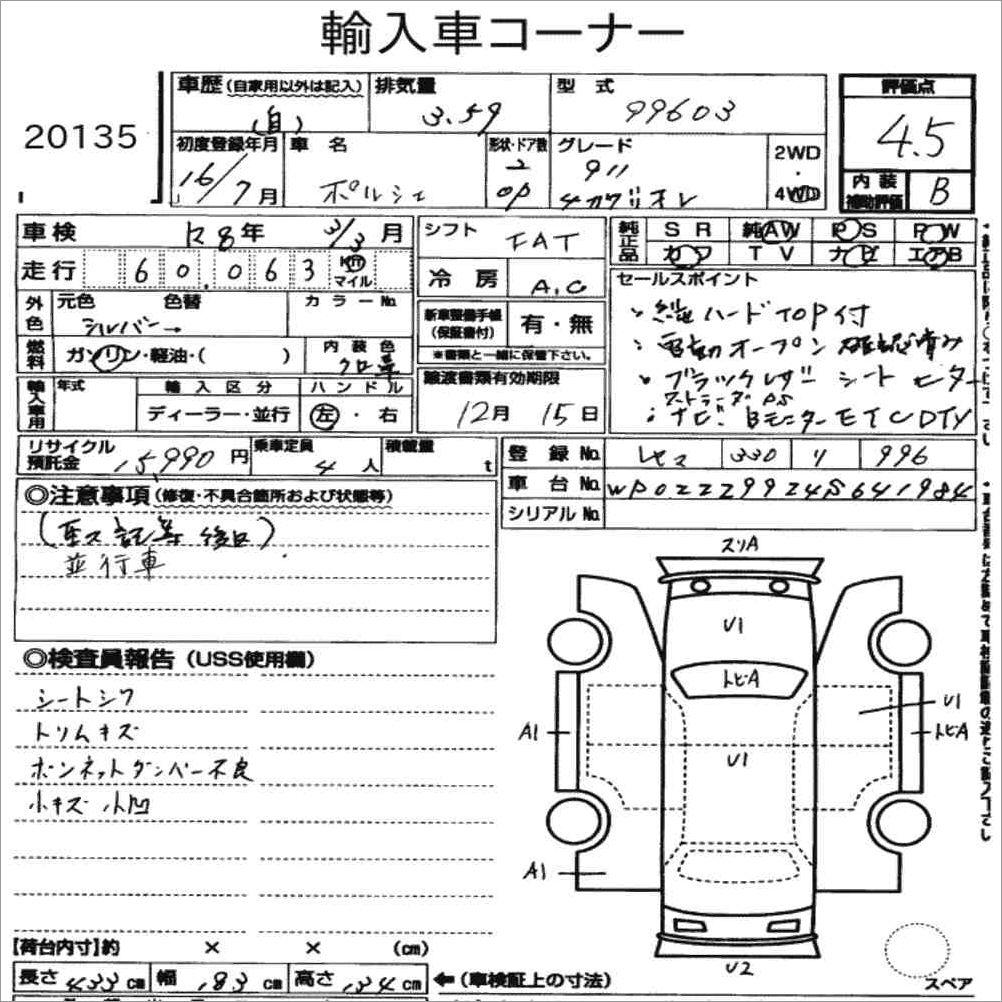 輸入車コーナー
20135
車歴 (自家用以外は記入) 排気量 型式 評価点
(自) 3.59 99603 4.5
初度登録年月 車名 形状・ドア数 グレード 2WD・4WD
16/7月 ポルシェ 2 OP 911 4カブリオレ
内装補助評価 B
車検 8年 3/3月 シフト FAT 純正品 SR 純AW PS PW
カワ TV ナビ エアB
走行 60,063 km マイル 冷房 A.C
セールスポイント
・純ハードTOP付
・電動オープン確認済み
・ブラックレザーシートヒーター
・ナビ Bモニター ETC DTV
外色 元色 色替 カラーNo.
シルバー→
新車整備手帳(保証書付) 有・無
※書類と一緒に保管下さい。
燃料 ガソリン・軽油・( ) 内装色 クロ革
輸入車用 年式 輸入区分 ハンドル
ディーラー・並行 左・右
譲渡書類有効期限
12月 15日
リサイクル預託金 15,990円 乗車定員 4人 積載量 t
登録No. 330 リ 996
車台No. WP0ZZZ99Z4S641984
シリアルNo.
◎注意事項 (修復・不具合箇所および状態等)
並行車
◎検査員報告 (USS使用欄)
シートシワ
トリムキズ
ボンネットダンパー不良
小キズ 小凹
スリA
U1
トビA
U1
U1
トビA
A1
A1
U2
スペア
【荷台内寸】約 × × (cm)
長さ 433cm 幅 183cm 高さ 134cm ←(車検証上の寸法)